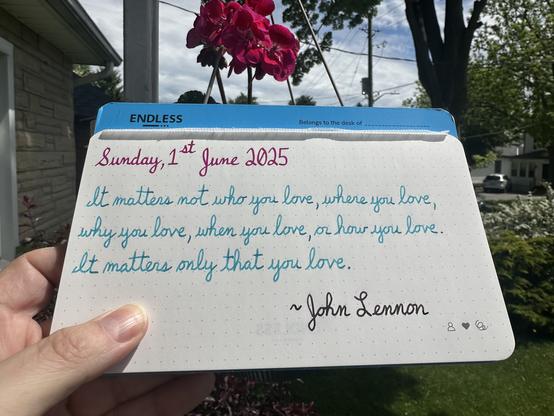 ENDLESS
Belongs to the desk of
Sunday, 1st June 2025
It matters not who you love, where you love,
why you love, when you love, or how you love.
It matters only that you love.
~John Lennon